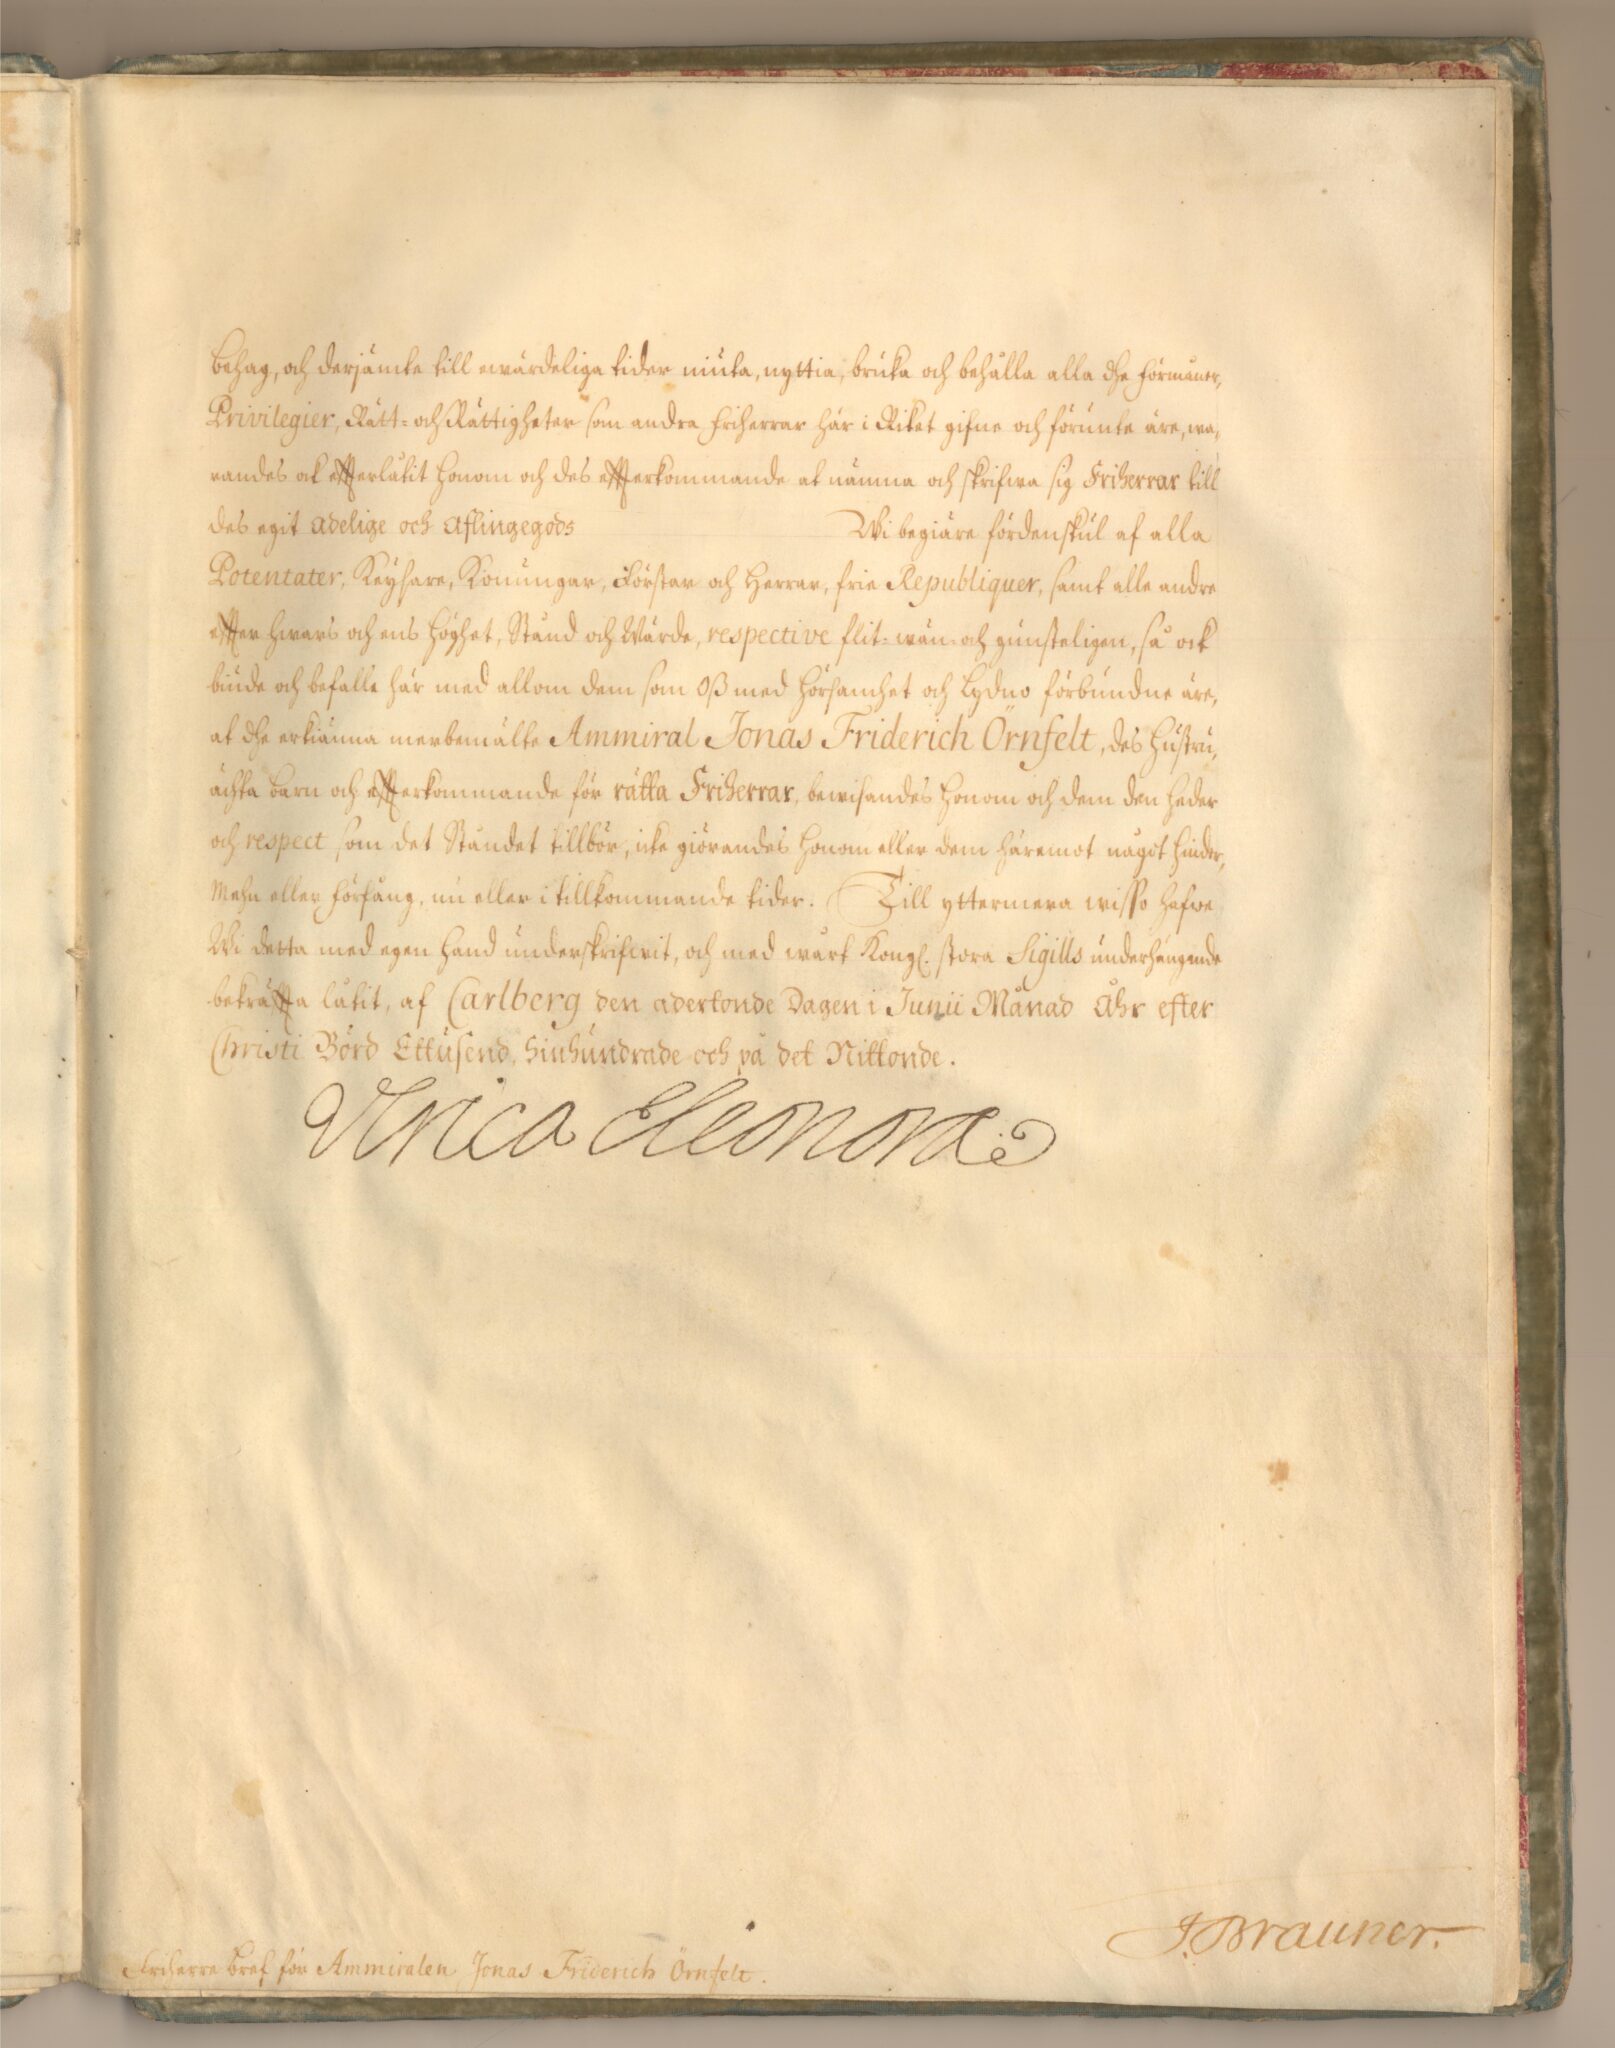 behag, och derjämte till ewärdeliga tider niuta, nyttia, bruka och behålla alla dhe förmåner,
Privilegier, Rätt- och Rättigheter som andra friherrar här i Riket gifne och förunte äre, wa,
randes ok effterlåtit honom och des effterkommande at nämna och skrifwa sig Friherrar till
des egit Adelige och Aflingegods Wi begiäre fördenskul af alla
Potentater, Keysare, Konungar, Förstar och Herrar, frie Republiquer, samt alle andre
effter hwars och ens höghet, Stånd och Wärde, respective flit- wän- och gunsteligen, så ock
biude och befalle här med allom dem som Oß med hörsamhet och Lydno förbundne äre,
at dhe erkiänna merbemälte Ammiral Jonas Friderich Örnfelt, des hustru,
ächta barn och effterkommande för rätta Friherrar, bewisandes honom och dem den heder
och respect som det Ståndet tillbör, icke giörandes honom eller dem häremot något hinder,
Mehn eller förfång, nu eller i tillkommande tider. Till yttermera wisso hafwe
Wi detta med egen hand underskrifwit, och med wårt Kongl. stora Sigills underhängende
bekräffta låtit, af Carlberg den adertonde Dagen i Junii Månad Åhr efter
Christi Börd Ettusend, Siuhundrade och på det Nittonde.
Ulrica Eleonora
J. Brauner.
Friherre bref för Ammiralen Jonas Friderich Örnfelt.